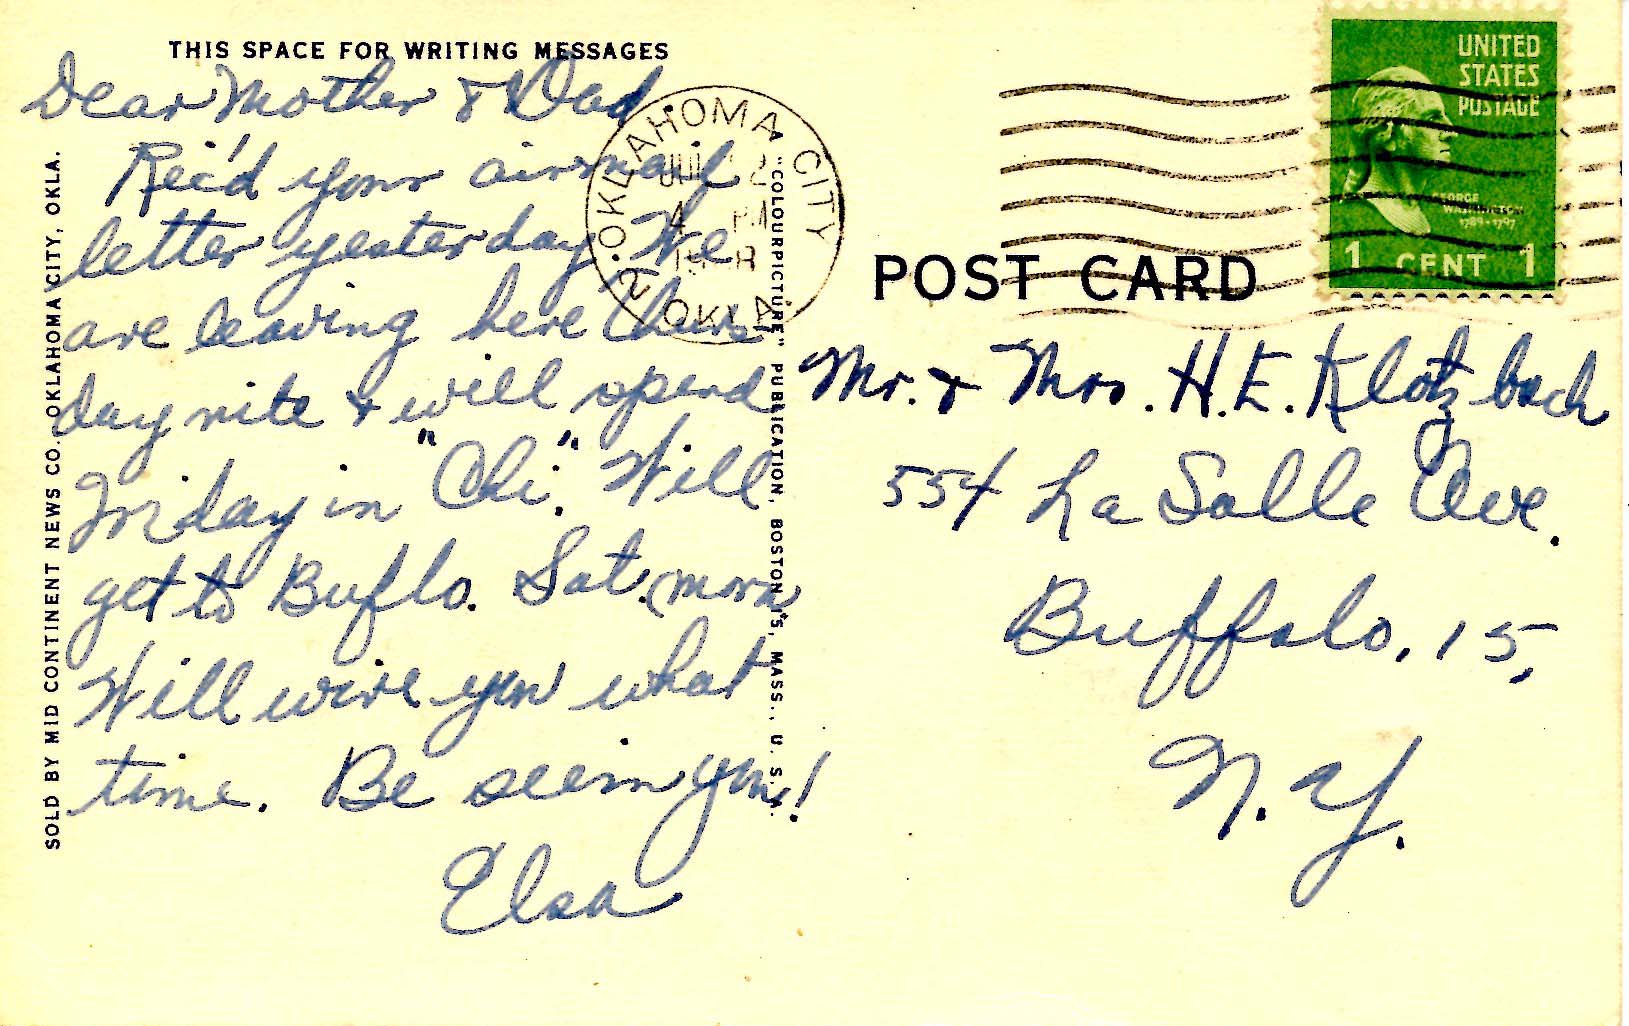 THIS SPACE FOR WRITING MESSAGES
Dear Mother & Dad
Rec'd your airmail
letter yesterday. We
are leaving here Thurs-
day nite & will spend
Friday in "Chi". Will
get to Buflo. Sat. morn.
Will wire you what
time. Be seein you!
Elsa
SOLD BY MID CONTINENT NEWS CO., OKLAHOMA CITY, OKLA.
A "COLOURPICTURE" PUBLICATION, BOSTON 15, MASS., U.S.A.
OKLAHOMA CITY
2
4 PM
OKLA.
POST CARD
UNITED
STATES
POSTAGE
GEORGE
WASHINGTON
1789-1797
1 CENT 1
Mr. & Mrs. H. E. Klotzbach
554 La Salle Ave.
Buffalo, 15,
N. Y.